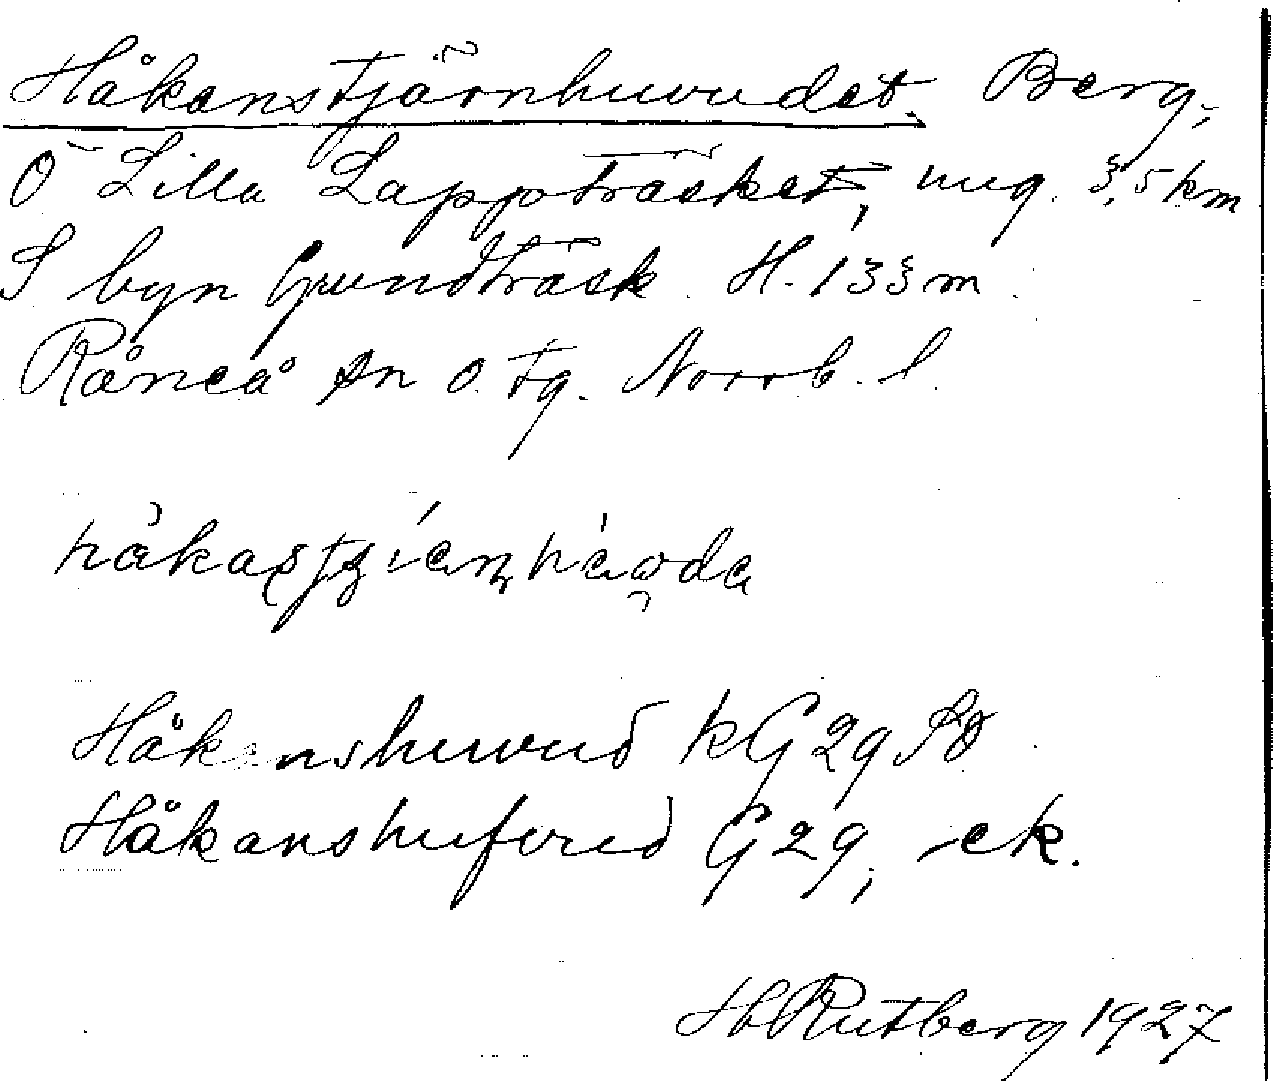 Håkanstjärnhuvudet Berg,
Ö Lilla Lappträsket, ung. 3,5 km
S byn Gundträsk. H. 133 m.
Råneå sn o. tg. Norrb. l.
Håkanshuvud kG29
Håkanshufvud G29, ek.
H Rutberg 1927